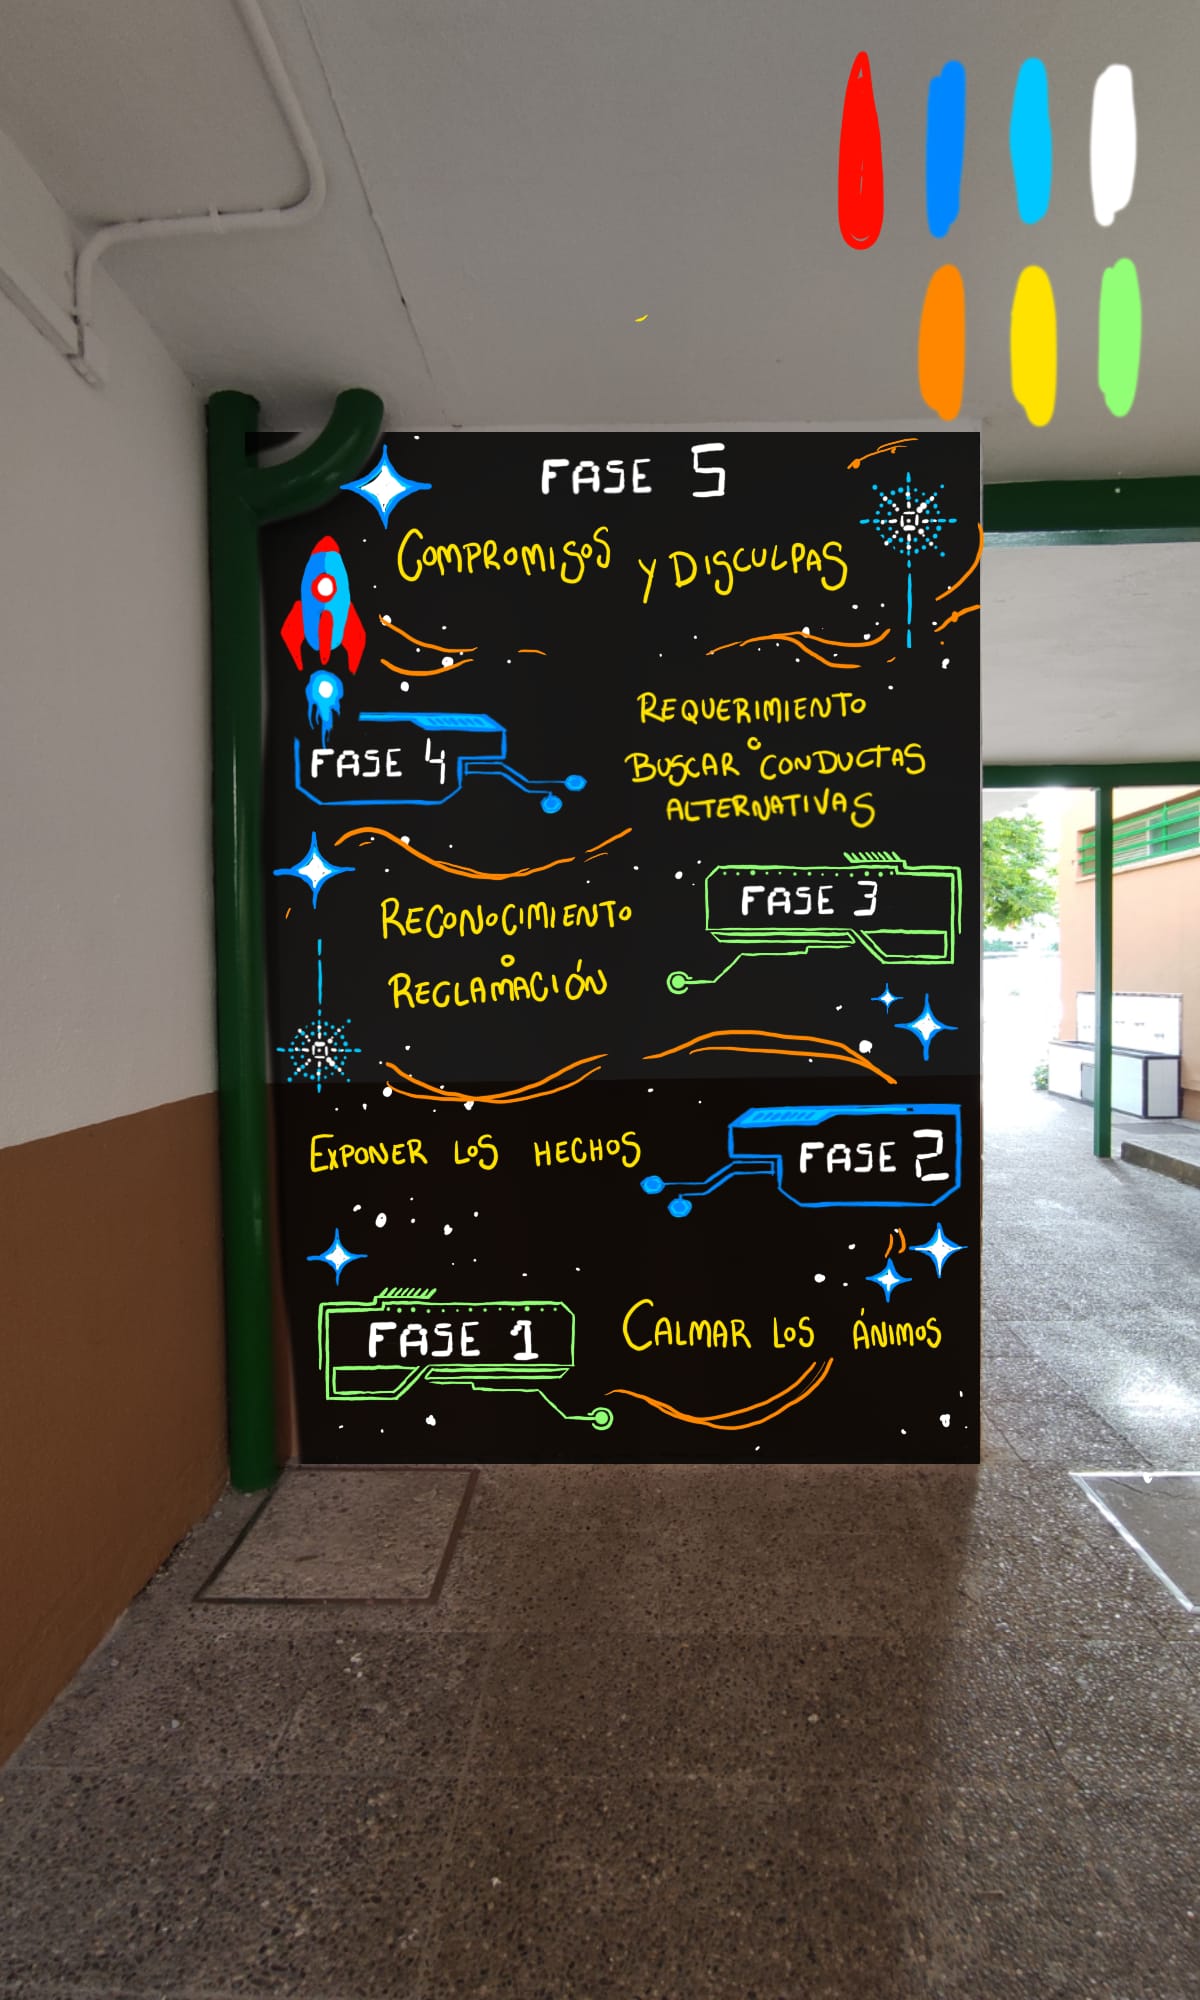 FASE 5
COMPROMISOS Y DISCULPAS
FASE 4
REQUERIMIENTO
O
BUSCAR CONDUCTAS
ALTERNATIVAS
FASE 3
RECONOCIMIENTO
O
RECLAMACIÓN
EXPONER LOS HECHOS
FASE 2
FASE 1
CALMAR LOS ÁNIMOS